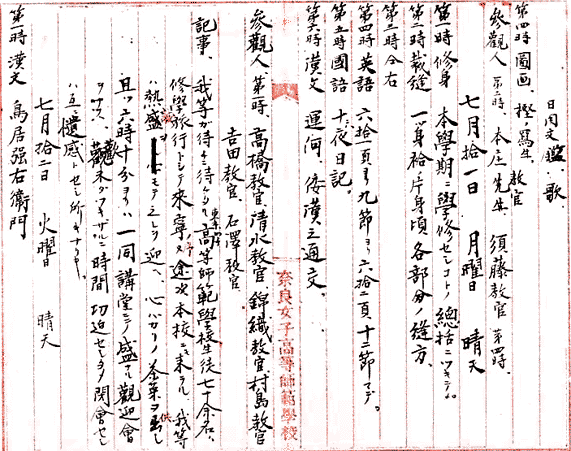 日用文 鑑、歌
第四時 圖画、樫ノ寫生
參觀人 第二時、本庄先生 須藤教官 第四時、教官
七月拾一日 月曜日 晴天
第一時 修身 本學期ニ學修セシコトノ總括ニツキテ。
第二時 裁縫 一ツ身袷ノ片身頃各部分ノ縫方、
第三時 仝右
第四時 英語 六拾一頁ヨリ九節ヨリ六拾二頁十二節マデ。
第五時 國語 十六夜日記。
第六時 漢文 運河、倭漢之通交。
參觀人、第一時、高橋教官、清水教官、錦織教官、村島教官
吉田教官、石澤教官
記事、我等が待チニ待チタル東京女子高等師範學校生徒七十余名、
修學旅行トシテ來寧ノ途次本校ニ来ラル、我等
ハ熱盛ヲモテ之レヲ迎ヘ、心バカリノ茶菓ヲ供シ
且ツ六時十分ヨリハ一同講堂ニテ盛ナル歡迎會
ヲナス、歡未ダツキザルニ時間切迫セシタメ閉會セシ
ハ互ニ遺感トセシ所ナリキ。
七月拾二日 火曜日 晴天
第一時 漢文 鳥居强右衛門
奈良女子高等師範學校